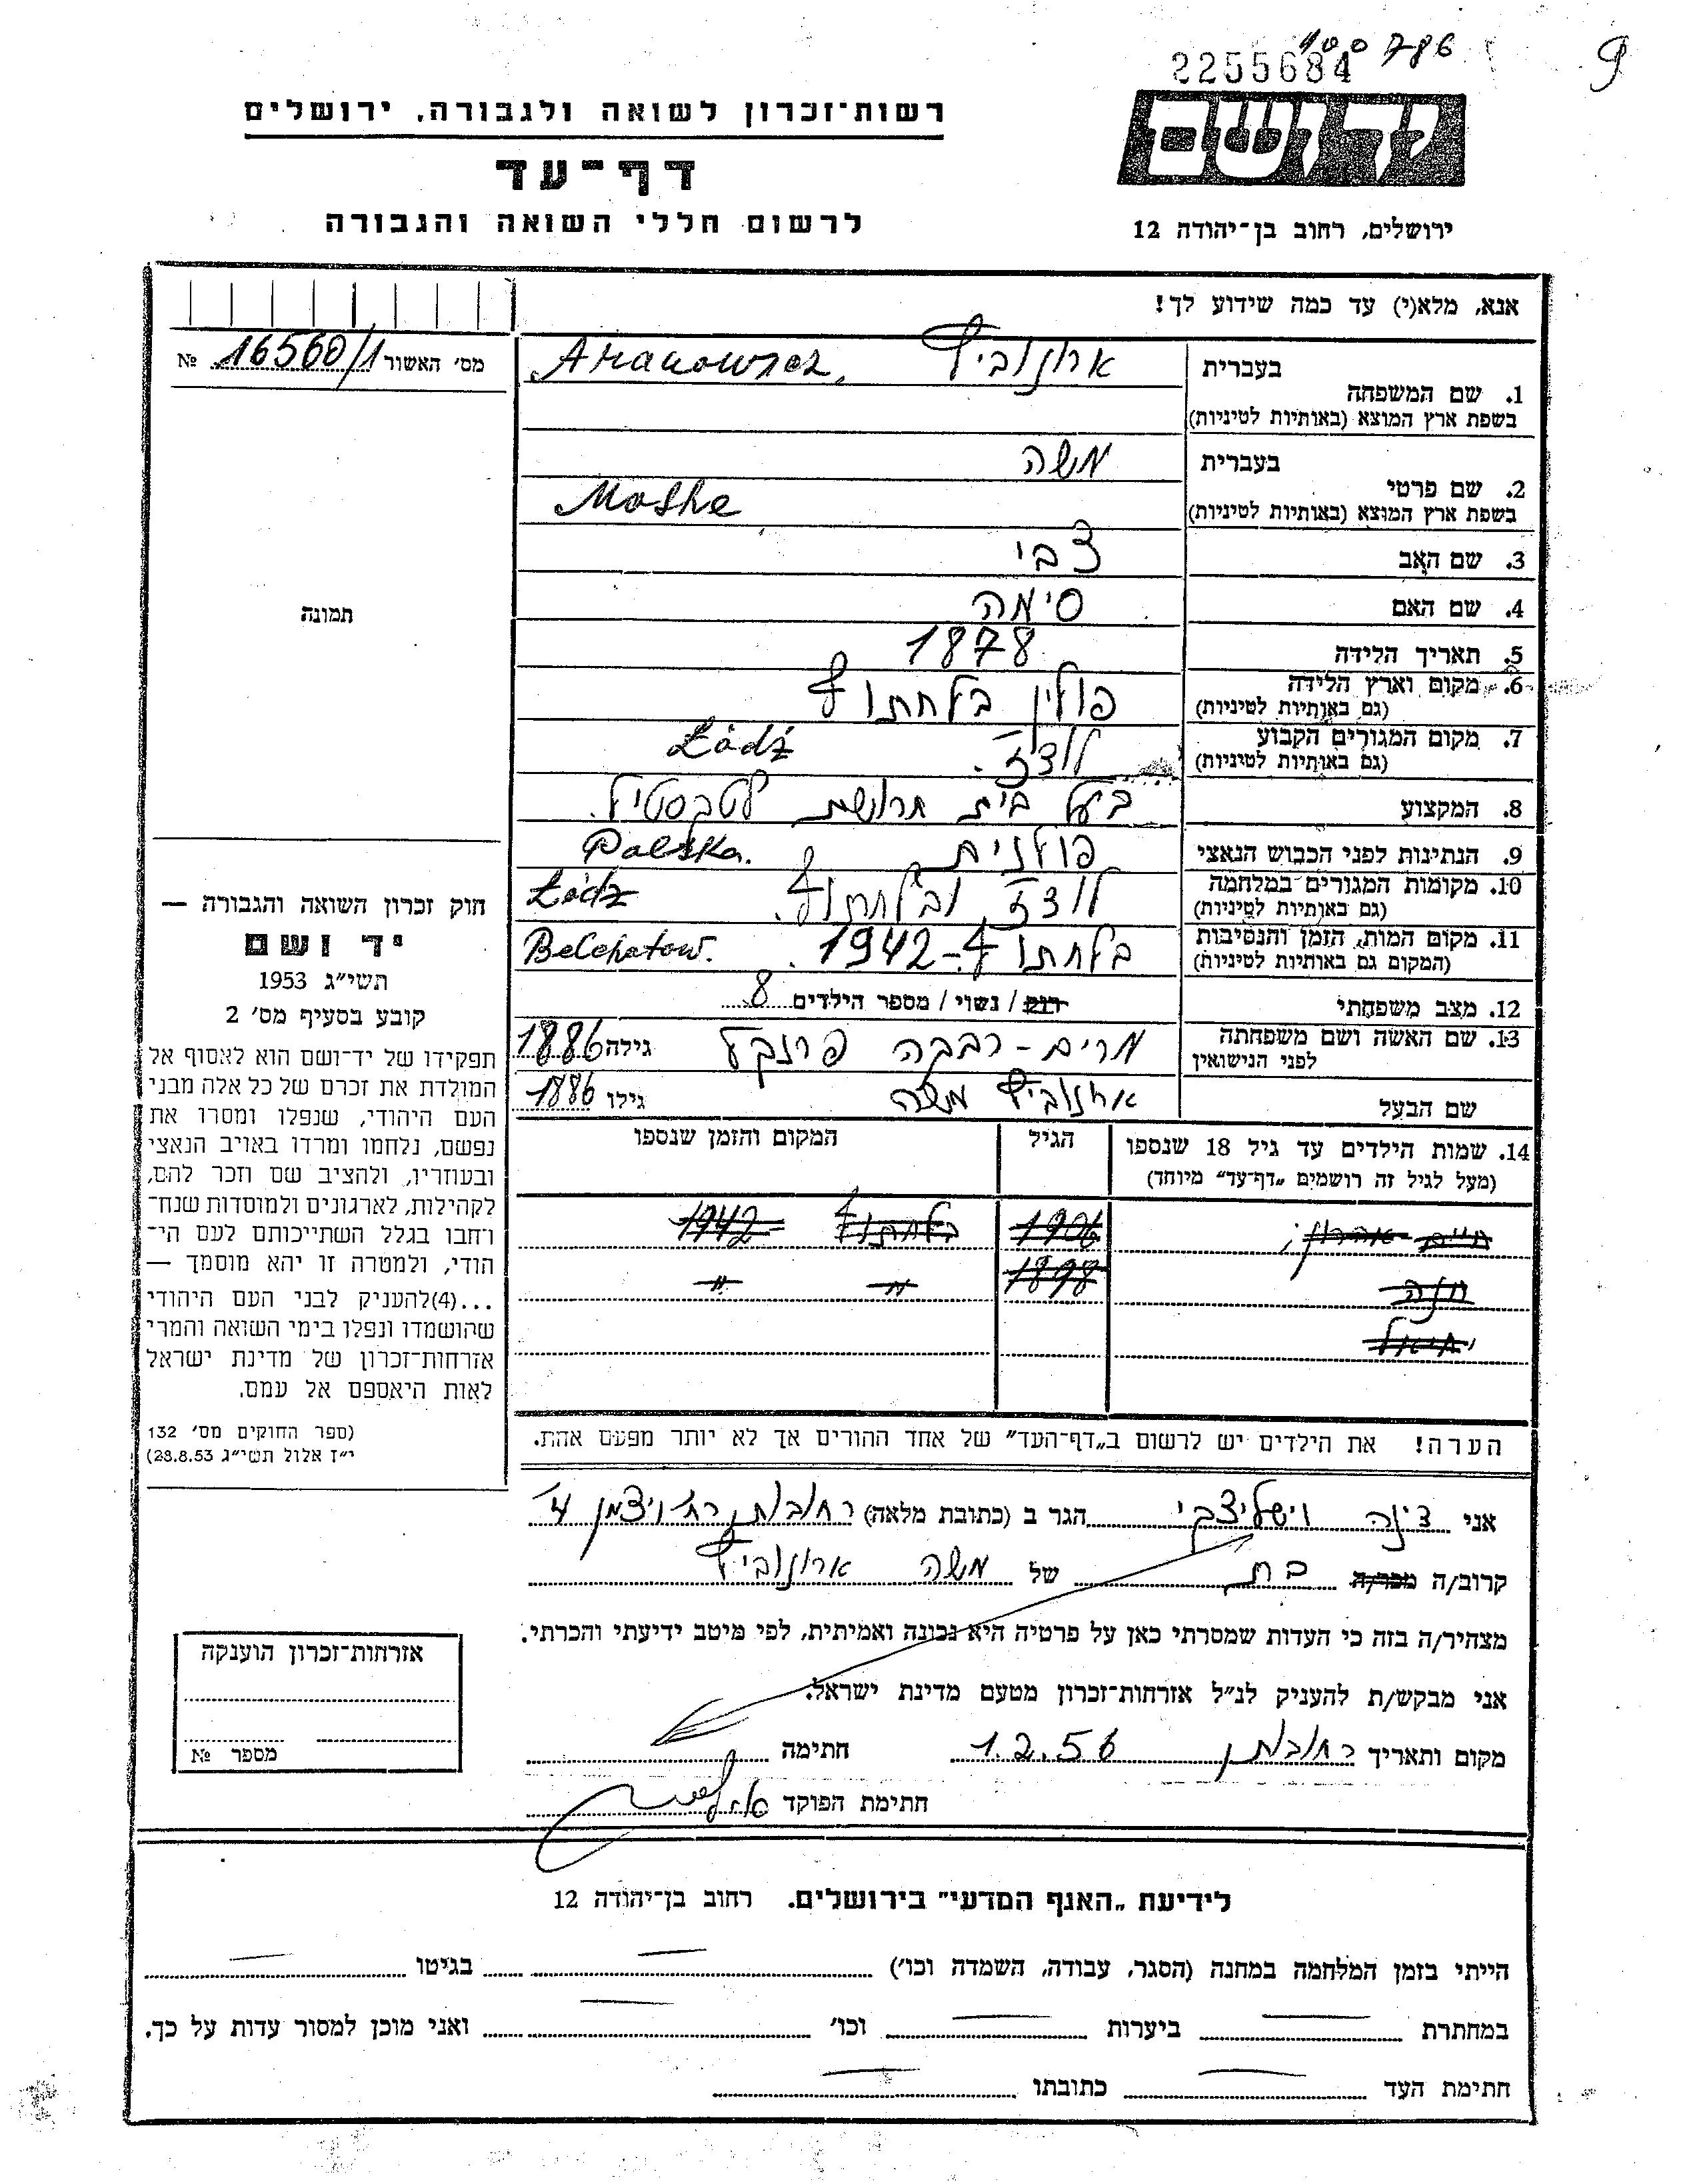 100786
2255684
יד ושם
ירושלים, רחוב בן־יהודה 12
רשות־זכרון לשואה ולגבורה, ירושלים
דף־עד
לרשום חללי השואה והגבורה
אנא, מלא(י) עד כמה שידוע לך!
מס׳ האשור 16560/1 №
תמונה
1. שם המשפחה בעברית ארונוביץ Aranowicz
בשפת ארץ המוצא (באותיות לטיניות)
בעברית משה
2. שם פרטי
בשפת ארץ המוצא (באותיות לטיניות) Moshe
3. שם האב צבי
4. שם האם סימה
5. תאריך הלידה 1878
6. מקום וארץ הלידה פולין בלחתוב
(גם באותיות לטיניות)
7. מקום המגורים הקבוע לודז Łódź
(גם באותיות לטיניות)
8. המקצוע בעל בית חרושת לטכסטיל
9. הנתינות לפני הכבוש הנאצי פולנית Polska.
10. מקומות המגורים במלחמה לודז Łódz
(גם באותיות לטיניות)
11. מקום המות, הזמן והנסיבות 1942 Belchatow.
(המקום גם באותיות לטיניות)
12. מצב משפחתי רווק / נשוי / מספר הילדים 8
13. שם האשה ושם משפחתה מרים - רבקה פרנקל גילה 1886
לפני הנישואין
שם הבעל ארונוביץ משה גילו 1886
14. שמות הילדים עד גיל 18 שנספו הגיל המקום והזמן שנספו
(מעל לגיל זה רושמים „דף־עד״ מיוחד)
חיים אהרון; 1906 1942
חנה 1898 " "
יחיאל
הערה! את הילדים יש לרשום ב„דף־העד״ של אחד ההורים אך לא יותר מפעם אחת.
חוק זכרון השואה והגבורה —
יד ושם
תשי״ג 1953
קובע בסעיף מס׳ 2
תפקידו של יד־ושם הוא לאסוף אל
המולדת את זכרם של כל אלה מבני
העם היהודי, שנפלו ומסרו את
נפשם, נלחמו ומרדו באויב הנאצי
ובעוזריו, ולהציב שם וזכר להם,
לקהילות, לארגונים ולמוסדות שנח־
רחבו בגלל השתייכותם לעם הי־
הודי, ולמטרה זו יהא מוסמך —
...(4)להעניק לבני העם היהודי
שהושמדו ונפלו בימי השואה והמרי
אזרחות־זכרון של מדינת ישראל
לאות היאספם אל עמם.
(ספר החוקים מס׳ 132
י״ז אלול תשי״ג 28.8.53)
אני דינה הגר ב (כתובת מלאה) רחובות, רח׳ ויצמן
קרוב/ה מכר/ה בת של משה ארונוביץ
מצהיר/ה בזה כי העדות שמסרתי כאן על פרטיה היא נכונה ואמיתית, לפי מיטב ידיעתי והכרתי.
אני מבקש/ת להעניק לנ״ל אזרחות־זכרון מטעם מדינת ישראל.
מקום ותאריך רחובות 1.2.56 חתימה
חתימת הפוקד
אזרחות־זכרון הוענקה
מספר №
לידיעת „האגף המדעי״ בירושלים. רחוב בן־יהודה 12
הייתי בזמן המלחמה במחנה (הסגר, עבודה, השמדה וכו׳) בגיטו
במחתרת ביערות וכו׳ ואני מוכן למסור עדות על כך.
חתימת העד כתובתו